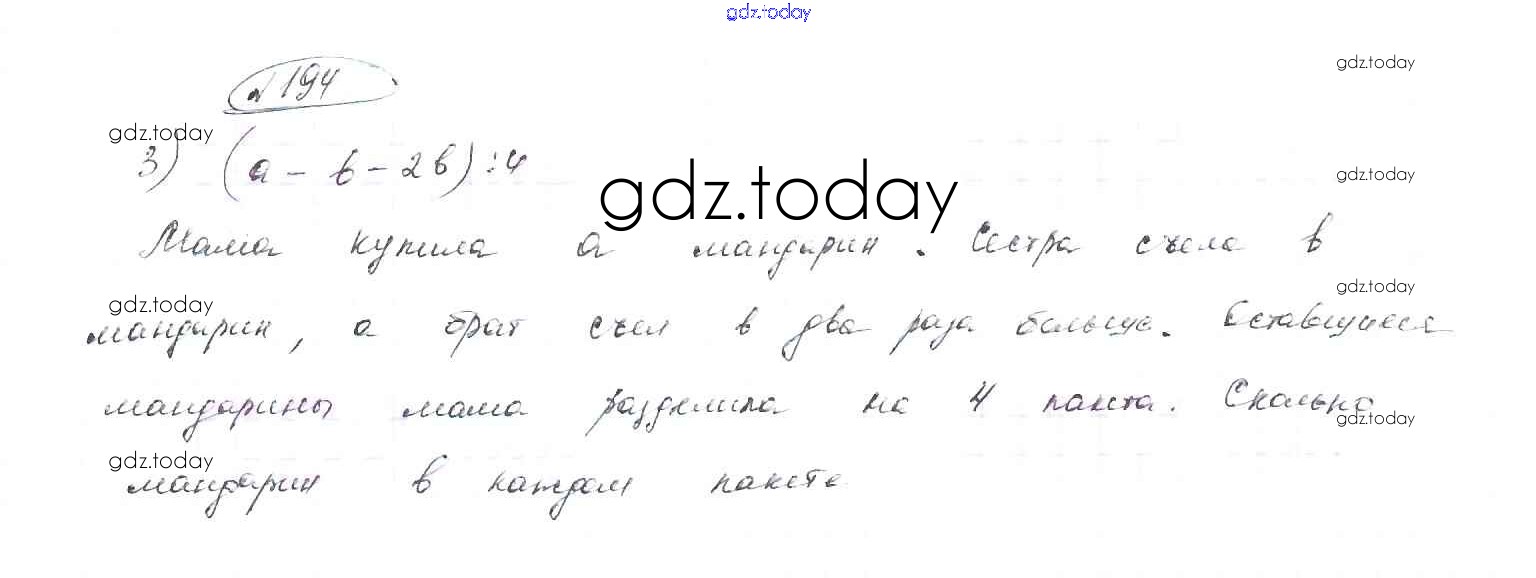 gdz.today
№ 194
gdz.today
gdz.today
3) (a - b - 2b) : 4
gdz.today
gdz.today
Мама купила a мандарин. Сестра съела b
gdz.today
gdz.today
мандарин, а брат съел в два раза больше. Оставшиеся
мандарины мама разделила на 4 пакета. Сколько
gdz.today
gdz.today
мандарин в каждом пакете